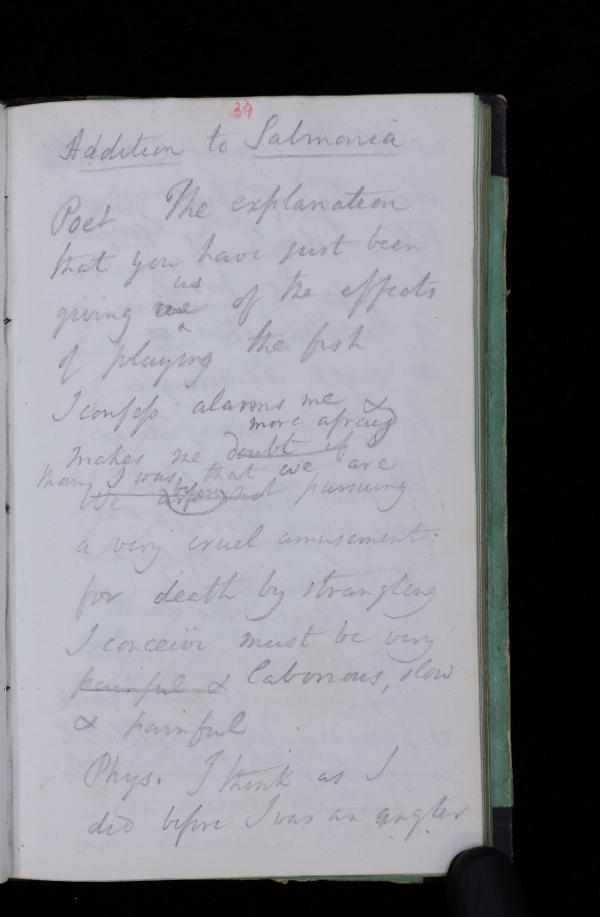 39
Addition to Salmonia
Poet The explanation
that you have just been
us
giving me of the effects
of playing the fish
I confess alarms me &
more afraid
makes me doubt if
than I was before that we are
We are not pursuing
a very cruel amusement.
for death by strangling
I conceive must be very
painful & laborious, slow
& painful
Phys. I think as I
did before I was an angler